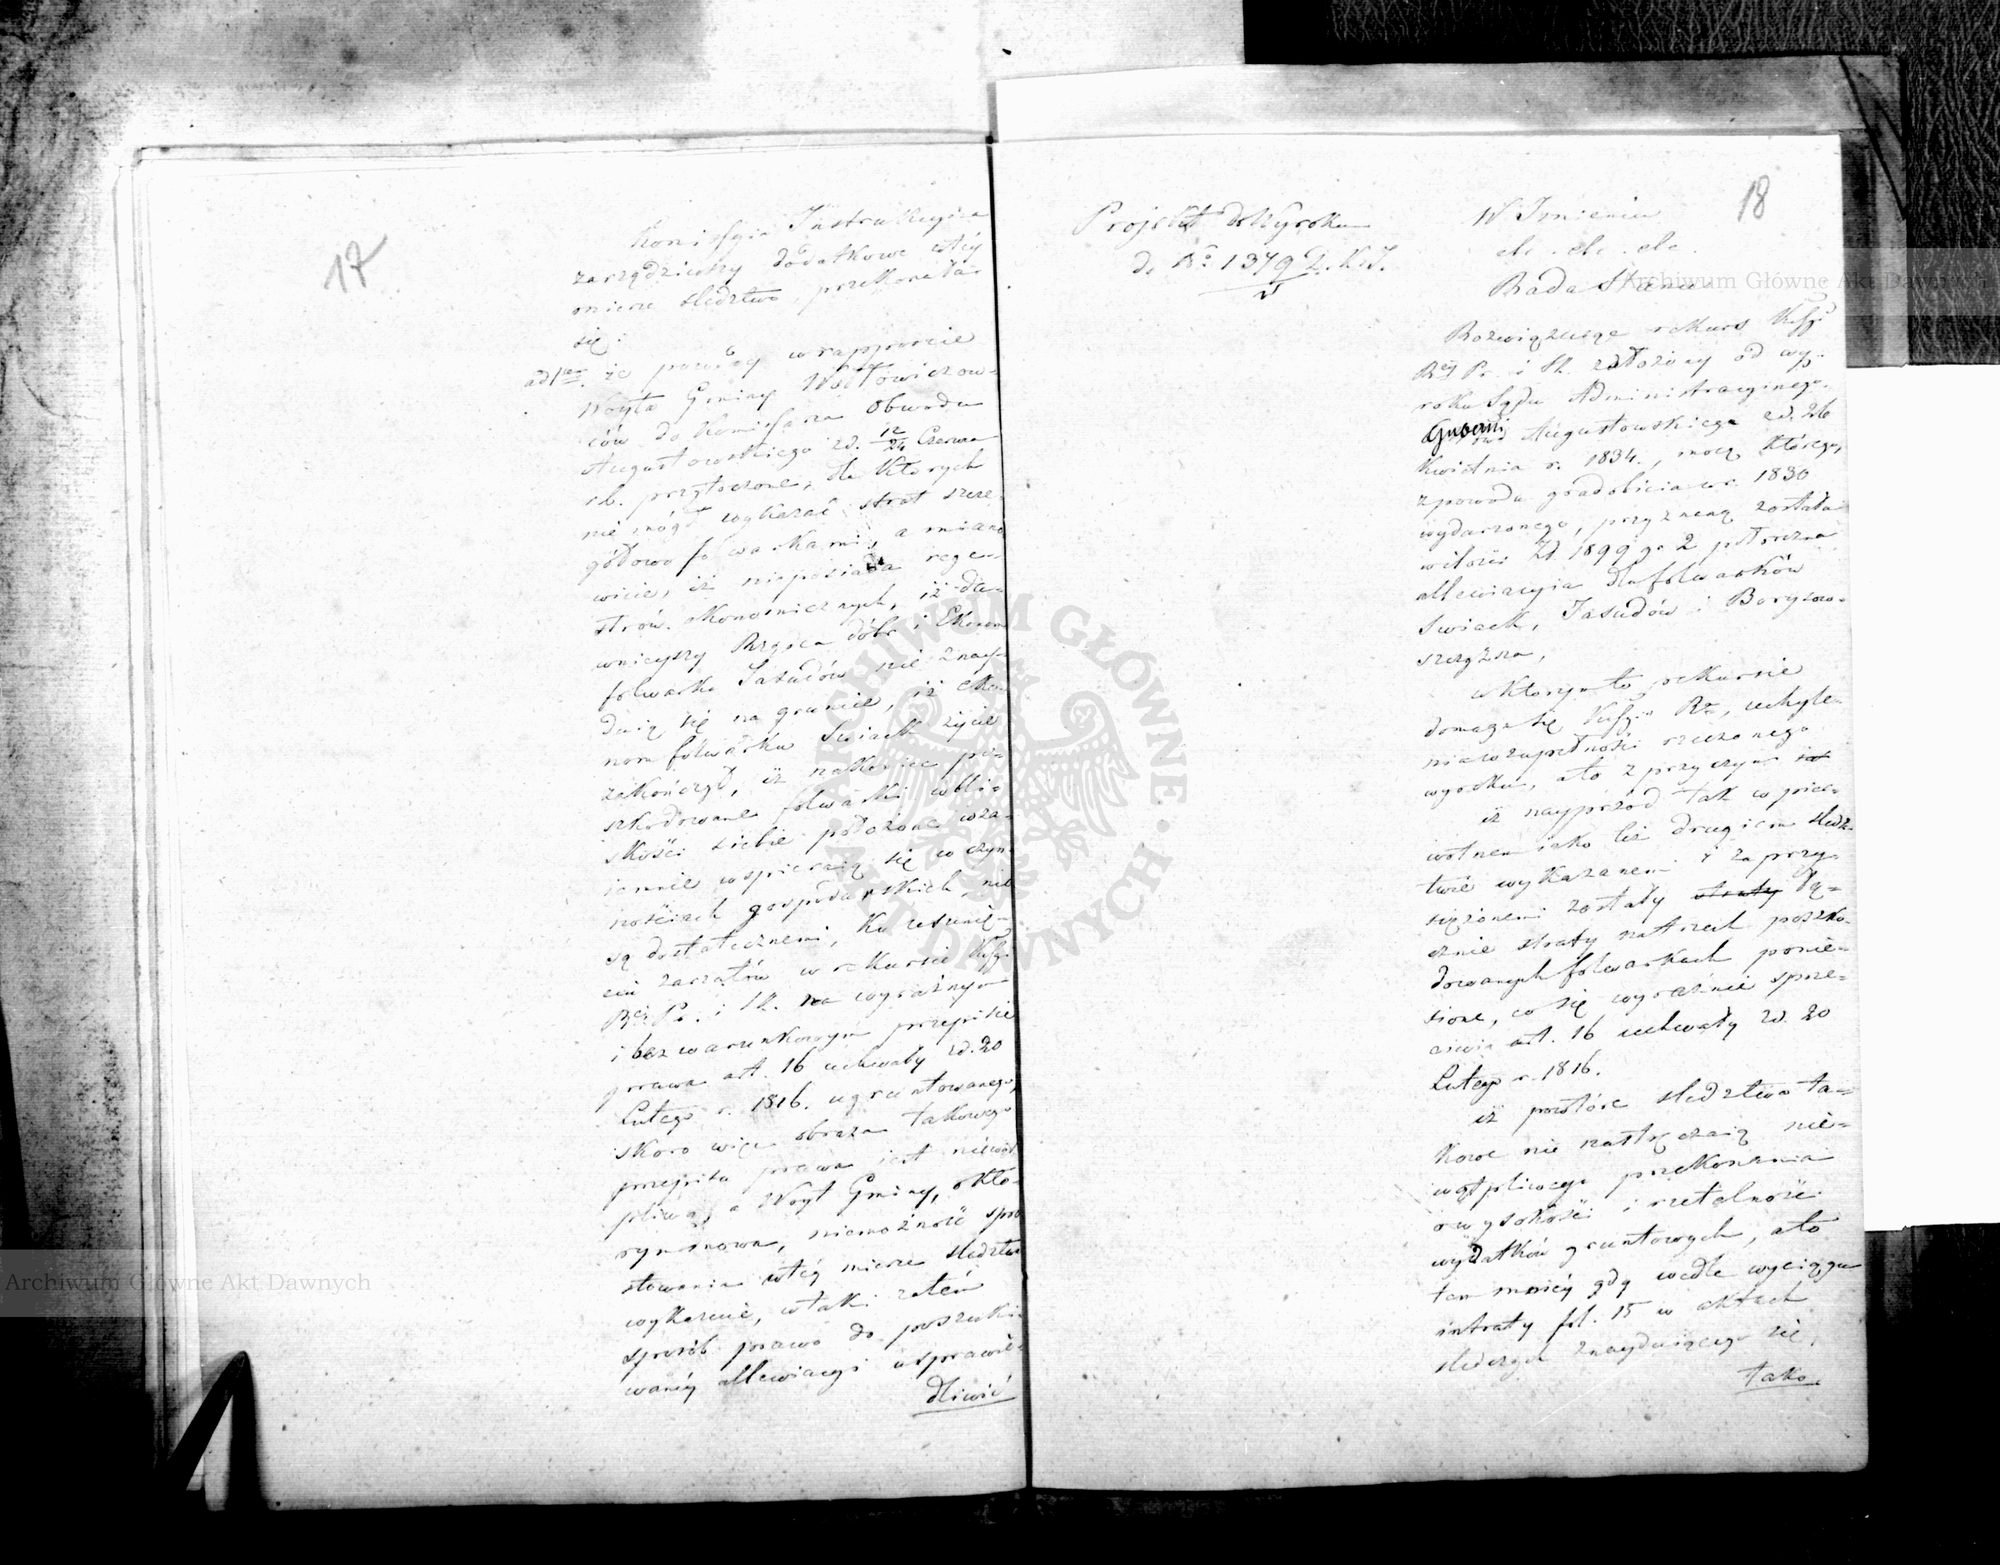 17
Komissyia Instrukcyjna
zarządziwszy dodatkowe w tey
mierze śledztwo, przekonała
się:
ad 1um że powody w rapporcie
Woyta Gminy Wołłowiczow-
ców do Kommissarza Obwodu
Augustowskiego z d. 12/24 Czerwca
r. b. przytoczone, dla których
nie mógł wykazać strat szcze-
gółowo folwarkami, a miano
wicie, iż nieposiada rege-
strów ekonomicznych, iż da-
wnieyszy Rządca dóbr i Ekonom
folwarku Jasudów nie znay-
duią się na gruncie, iż Eko-
nom folwarku Swiack życie
zakończył, iż nakoniec po-
szkodowane folwarki w bli-
skości siebie położone wza-
iemnie wspieraią się w czyn-
nościach gospodarskich nie
są dostatecznemi, ku usunię-
ciu zarzutów w rekursie Kssyi
Rwey P. i Sk. na wyraźnym
i bezwarunkowym przepisie
prawa art. 16 uchwały z d. 20
Lutego r. 1816. ugruntowanego,
skoro więc obraza takowego
przepisu prawa jest niewąt
pliwą, a Woyt Gminy, o któ-
rym mowa, niemożność spro
stowania w tey mierze śledztwa
wykazuie, w taki zatem
sposób prawo do poszuki-
waney allewiacyi usprawie-
dliwić
18
Projekt do Wyroku
do No 1379 D. K. I.
W Imieniu
etc. etc. etc.
Rada Stanu
Rozwiązuiąc rekurs Kssyi
Rwey Pr. i Sk. założony od wy-
roku Sądu Administracyinego
Gubernii Augustowskiego z d. 26
Kwietnia r. 1834., mocą którego,
z powodu gradobicia w r. 1830
wydarzonego, przyznaną została
w ilości Zł 1899 gr 2 półroczna
allewiacyia dla folwarków
Swiack, Jasudów i Boryszow-
szczyzna,
w którym to rekursie
domaga się Kssyia Rwa, uchyle-
nia w zupełności rzeczonego
wyroku, a to z przyczyn
iż nayprzód tak w pier-
wotnem iako też drugiem śledz-
twie wykazanemi i zaprzy-
siężonemi zostały straty łą-
cznie straty na trzech poszko-
dowanych folwarkach ponie-
sione, co się wyraźnie sprze-
ciwia art. 16 uchwały z d. 20
Lutego r. 1816.
iż powtóre śledztwa ta-
kowe nie nastręczaią nie-
wątpliwego przekonania
o wysokości i rzetelności
wydatków gruntowych, a to
tem mniey gdy wedle wyciągu
intraty fol. 15 w aktach
śledczych znayduiącego się,
tako
Archiwum Główne Akt Dawnych
Archiwum Główne Akt Dawnych
ARCHIWUM GŁÓWNE · AKT DAWNYCH ·